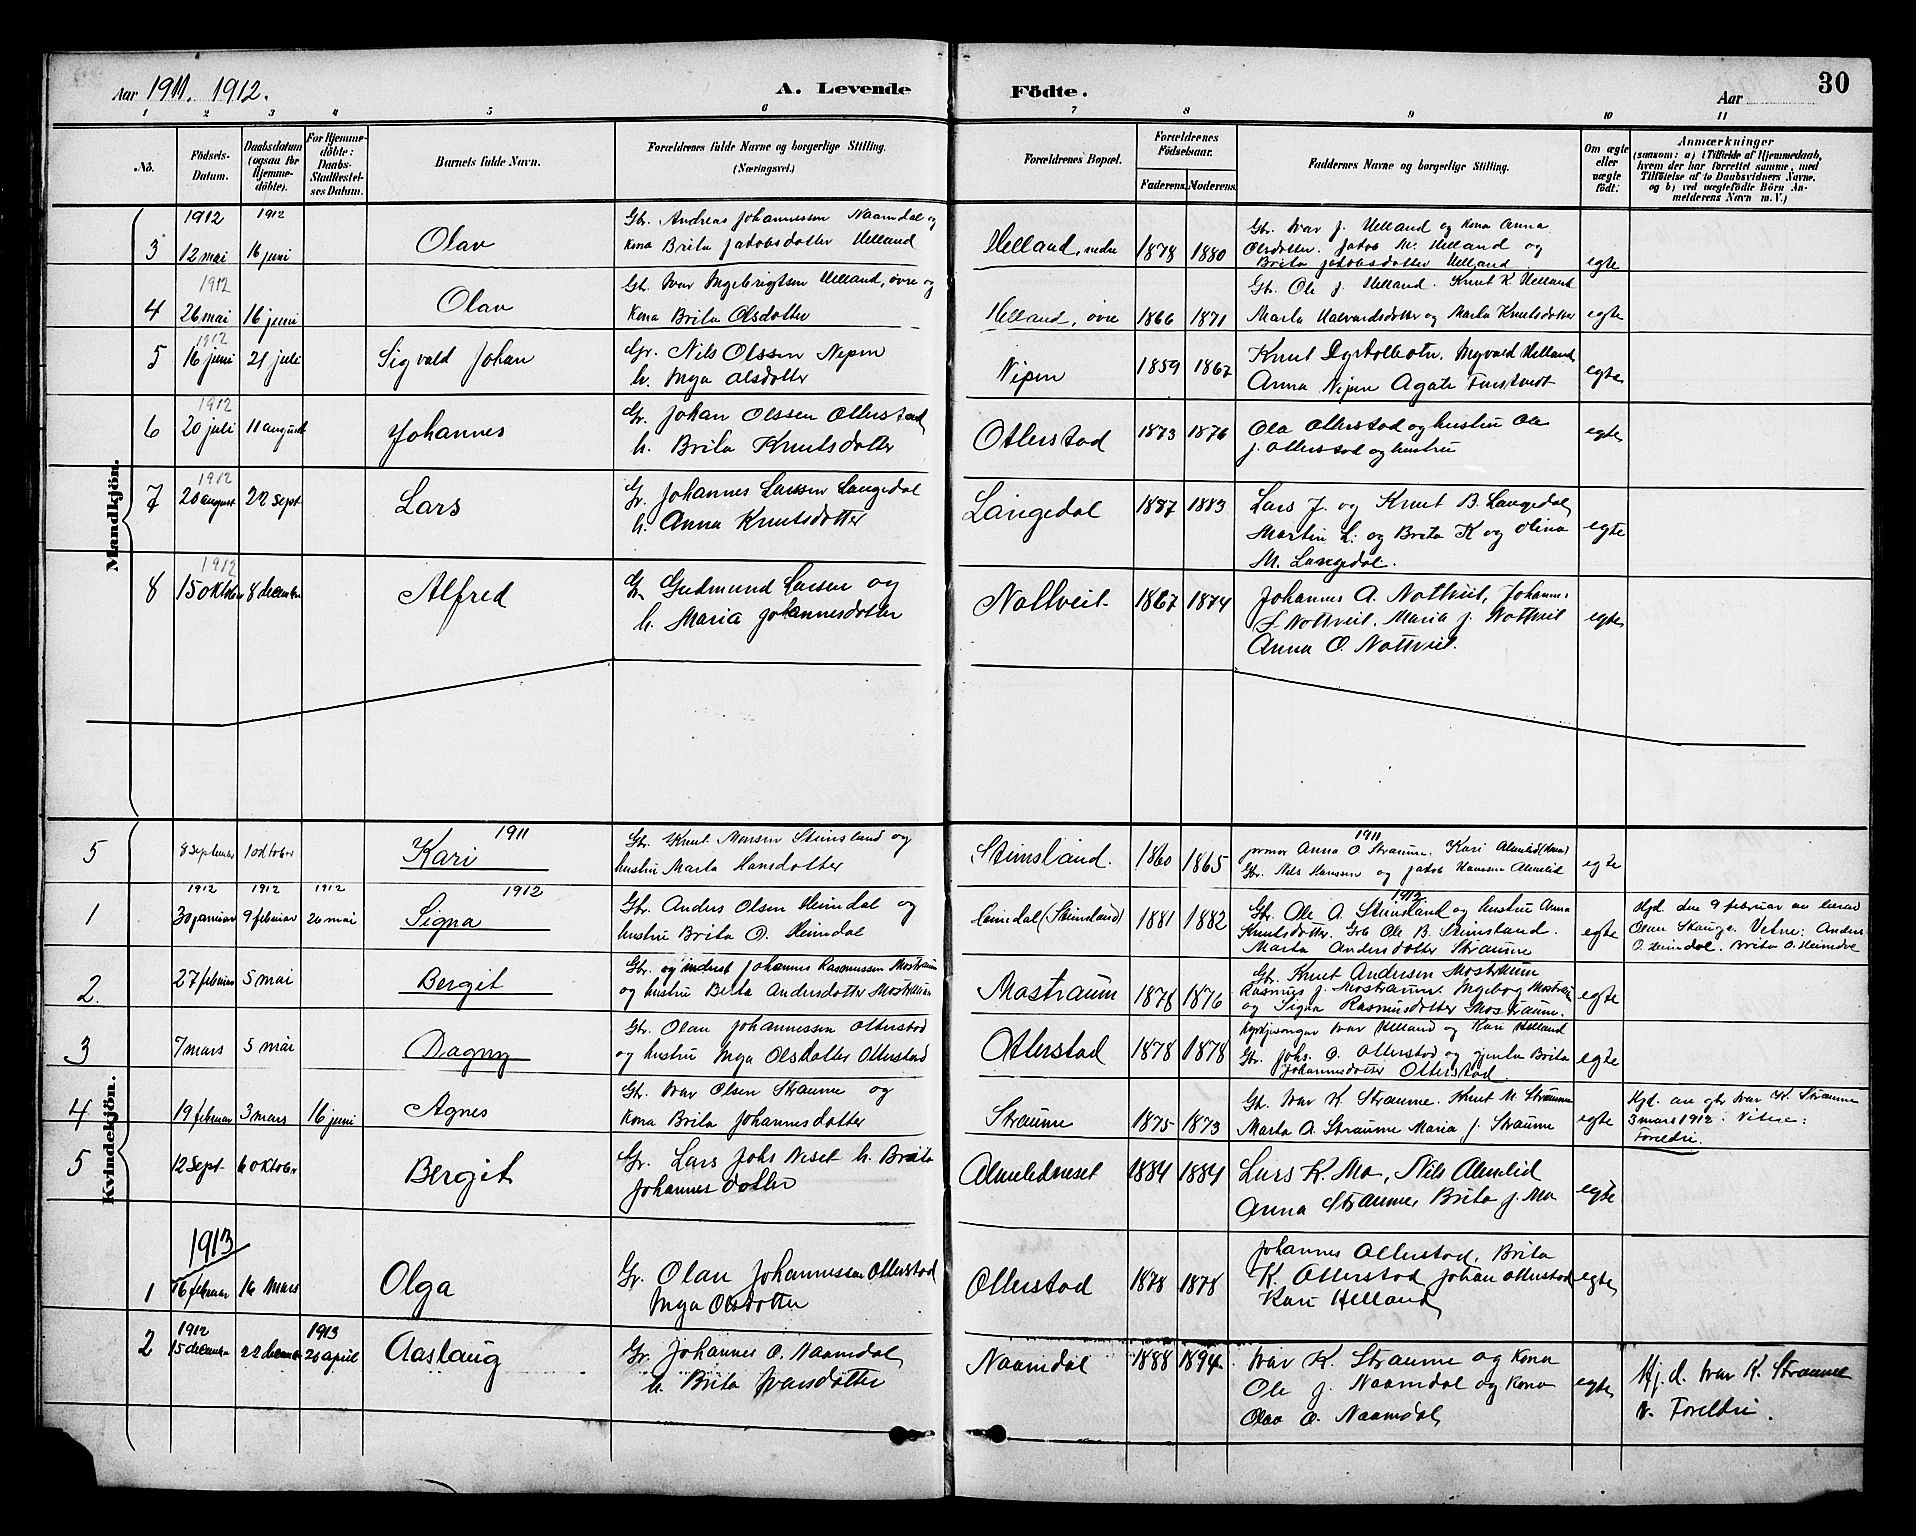 Aar 1911. 1912.
A. Levende
Födte.
Aar
30
1 2 3 4 5 6 7 8 9 10 11
No.
Födsels-
Datum.
Daabsdatum
(ogsaa for
Hjemme-
döbte).
For Hjemme-
döbte:
Daabs-
Stadfæstel-
ses Datum.
Barnets fulde Navn.
Forældrenes fulde Navne og borgerlige Stilling.
(Næringsvei.)
Forældrenes Bopæl.
Forældrenes
Födselsaar.
Faderens. Moderens.
Faddernes Navne og borgerlige Stilling.
Om ægte
eller
uægte
födt.
Anmærkninger
(saasom: a) i Tilfælde af Hjemmedaab,
hvem der har forrettet samme, med
Tilföielse af to Daabsvidners Navne.
og b) ved uægtefödte Börn An-
melderens Navn m. V.)
Mandkjön.
3
1912
12 mai
1912
16 juni
Olav
Gbr. Andreas Johannessen Naamdal og
kona Brita Jakobsdotter Helland
Helland, nedre
1878 1880
Gbr. Ivar J. Helland og kona Anna
Olsdotter. Jakob M. Helland og
Brita Jakobsdotter Helland
egte
4
1912
26 mai 16 juni
Olav
Gbr. Ivar Ingebrigtsen Helland, øvre og
kona Brita Olsdotter
Helland, øvre
1866 1871
Gbr. Ole J. Helland. Knut K. Helland
Marta Halvardsdotter og Marta Knutsdotter
egte
5
1912
16 juni 21 juli
Sigvald Johan
Gr. Nils Olssen Nipen
h. Inga Olsdotter
Nipen
1859 1867
Knut Dyrkolbotn. Ingvald Helland
Anna Nipen Agate
egte
6
1912
20 juli 11 august
Johannes
Gr. Johan Olssen Otterstad
h. Brita Knutsdotter
Otterstad
1873 1876
Ola Otterstad og hustru Ole
J. Otterstad og hustru
egte
7
1912
20 august 22 sept
Lars
Gr. Johannes Larssen Langedal
h. Anna Knutsdotter
Langedal
1887 1883
Lars J. og Knut B. Langedal
Martin L. og Brita K og Olina
M. Langedal.
egte
8
1912
15 oktober 8 december
Alfred
Gr. Gudmund Larsen og
h. Maria Johannesdotter
Nottveit.
1867 1874
Johannes A. Nottveit, Johannes
L Nottveit. Maria J. Nottveit
Anna O. Nottveit.
egte
Kvindekjön.
5
8 september 1 oktober
Kari 1911
Gbr. Knut Monsen Steinsland og
hustru Marta Hansdotter
Steinsland.
1860 1865
1911
Anna O Straume. Kari Almelid
Gbr. Nils Hanssen og Jakob Hanssen Almelid
egte
1
1912
30 januar
1912
9 februar
1912
26 mai
Signa 1912
Gbr. Anders Olsen Heimdal og
hustru Brita O. Heimdal
Heimdal (Steinsland)
1881 1882
1912
Gbr. Ole A. Steinsland og hustru Anna
Knutsdotter. Grb Ole B. Steinsland.
Marta Andersdotter Straume
egte
Hjd. den 9 februar av lærar
Olav Skauge. Vitne: Anders
O. Heimdal. Brita O. Heimdal
2.
27 februar 5 mai
Bergit
Gbr. og Johannes Rasmussen Mostraum
og hustru Brita Andersdotter Mostraum
Mostraum
1878 1876
Gbr. Knut Andersen Mostraum
Rasmus J. Mostraum. Ingebog Mostraum
og Signa Rasmusdotter Mostraum.
egte
3
7 mars 5 mai
Dagny
Gbr. Olav Johannessen Otterstad
og hustru Inga Olsdotter Otterstad
Otterstad
1878 1878
Kyrkjesongar Ivar Helland og Kari Helland
Gbr. Johs. O. Otterstad og gjenta Brita
Johannesdotter Otterstad
egte
4
19 februar 3 mars 16 juni
Agnes
Gbr. Ivar Olsen Straume og
kona Brita Johannesdotter
Straume
1875 1873
Gbr. Ivar K. Straume. Knut M. Straume
Marta A. Straume Maria J. Straume
egte
Hjd. av gbr Ivar K. Straume
3 mars 1912. Vitne:
Foreldri.
5
12 Sept 6 oktober
Bergit
Gr. Lars Johs Neset h. Brita
Johannesdotter
Almelidneset
1884 1884
Lars K. Mo, Nils Almelid
Anna Straume, Brita J. Mo
egte
1913
1
16 februar 16 mars
Olga
Gr. Olav Johannessen Otterstad
Inga Olsdotter
Otterstad
1878 1878
Johannes Otterstad. Brita
K. Otterstad Johan Otterstad
Kari Helland
egte
2
1912
15 december 22 december
1913
20 april
Aaslaug
Gr. Johannes O. Naamdal
h. Brita Ivarsdotter
Naamdal
1888 1894
Ivar K. Straume og kona
Ole J. Naamdal og kona
Olav O. Naamdal
egte
Hj.d. Ivar K. Straume
v. Foreldri.